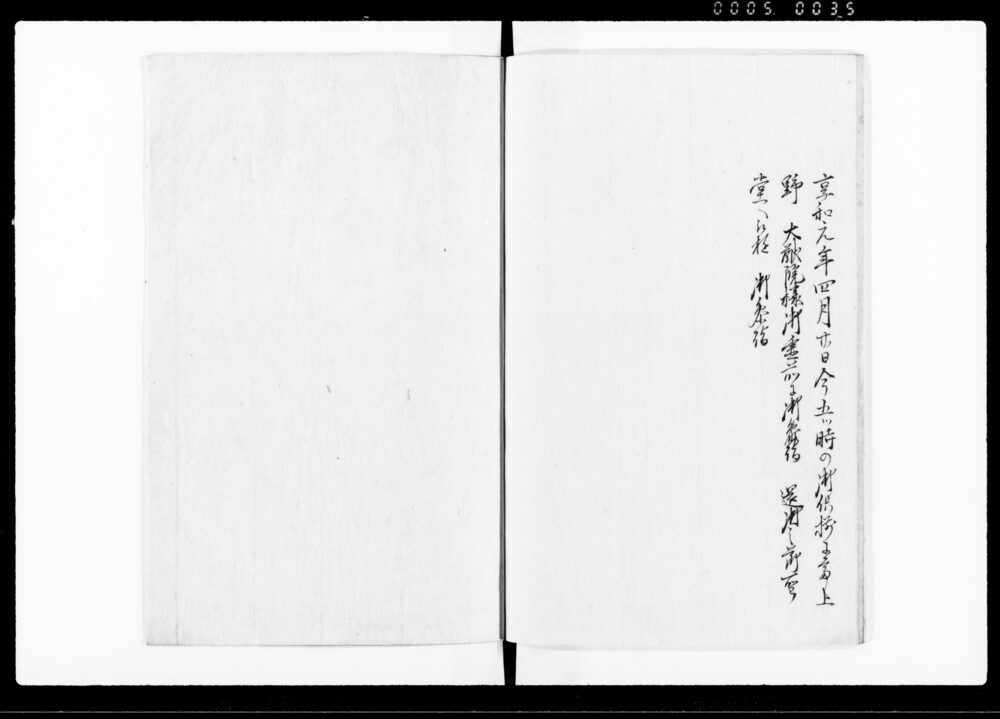 0005. 0035
享和元年四月廿日今五ツ時の御供揃ニ而上
野 大猷院様御霊前江御参詣 還御之節
堂へ 御参詣